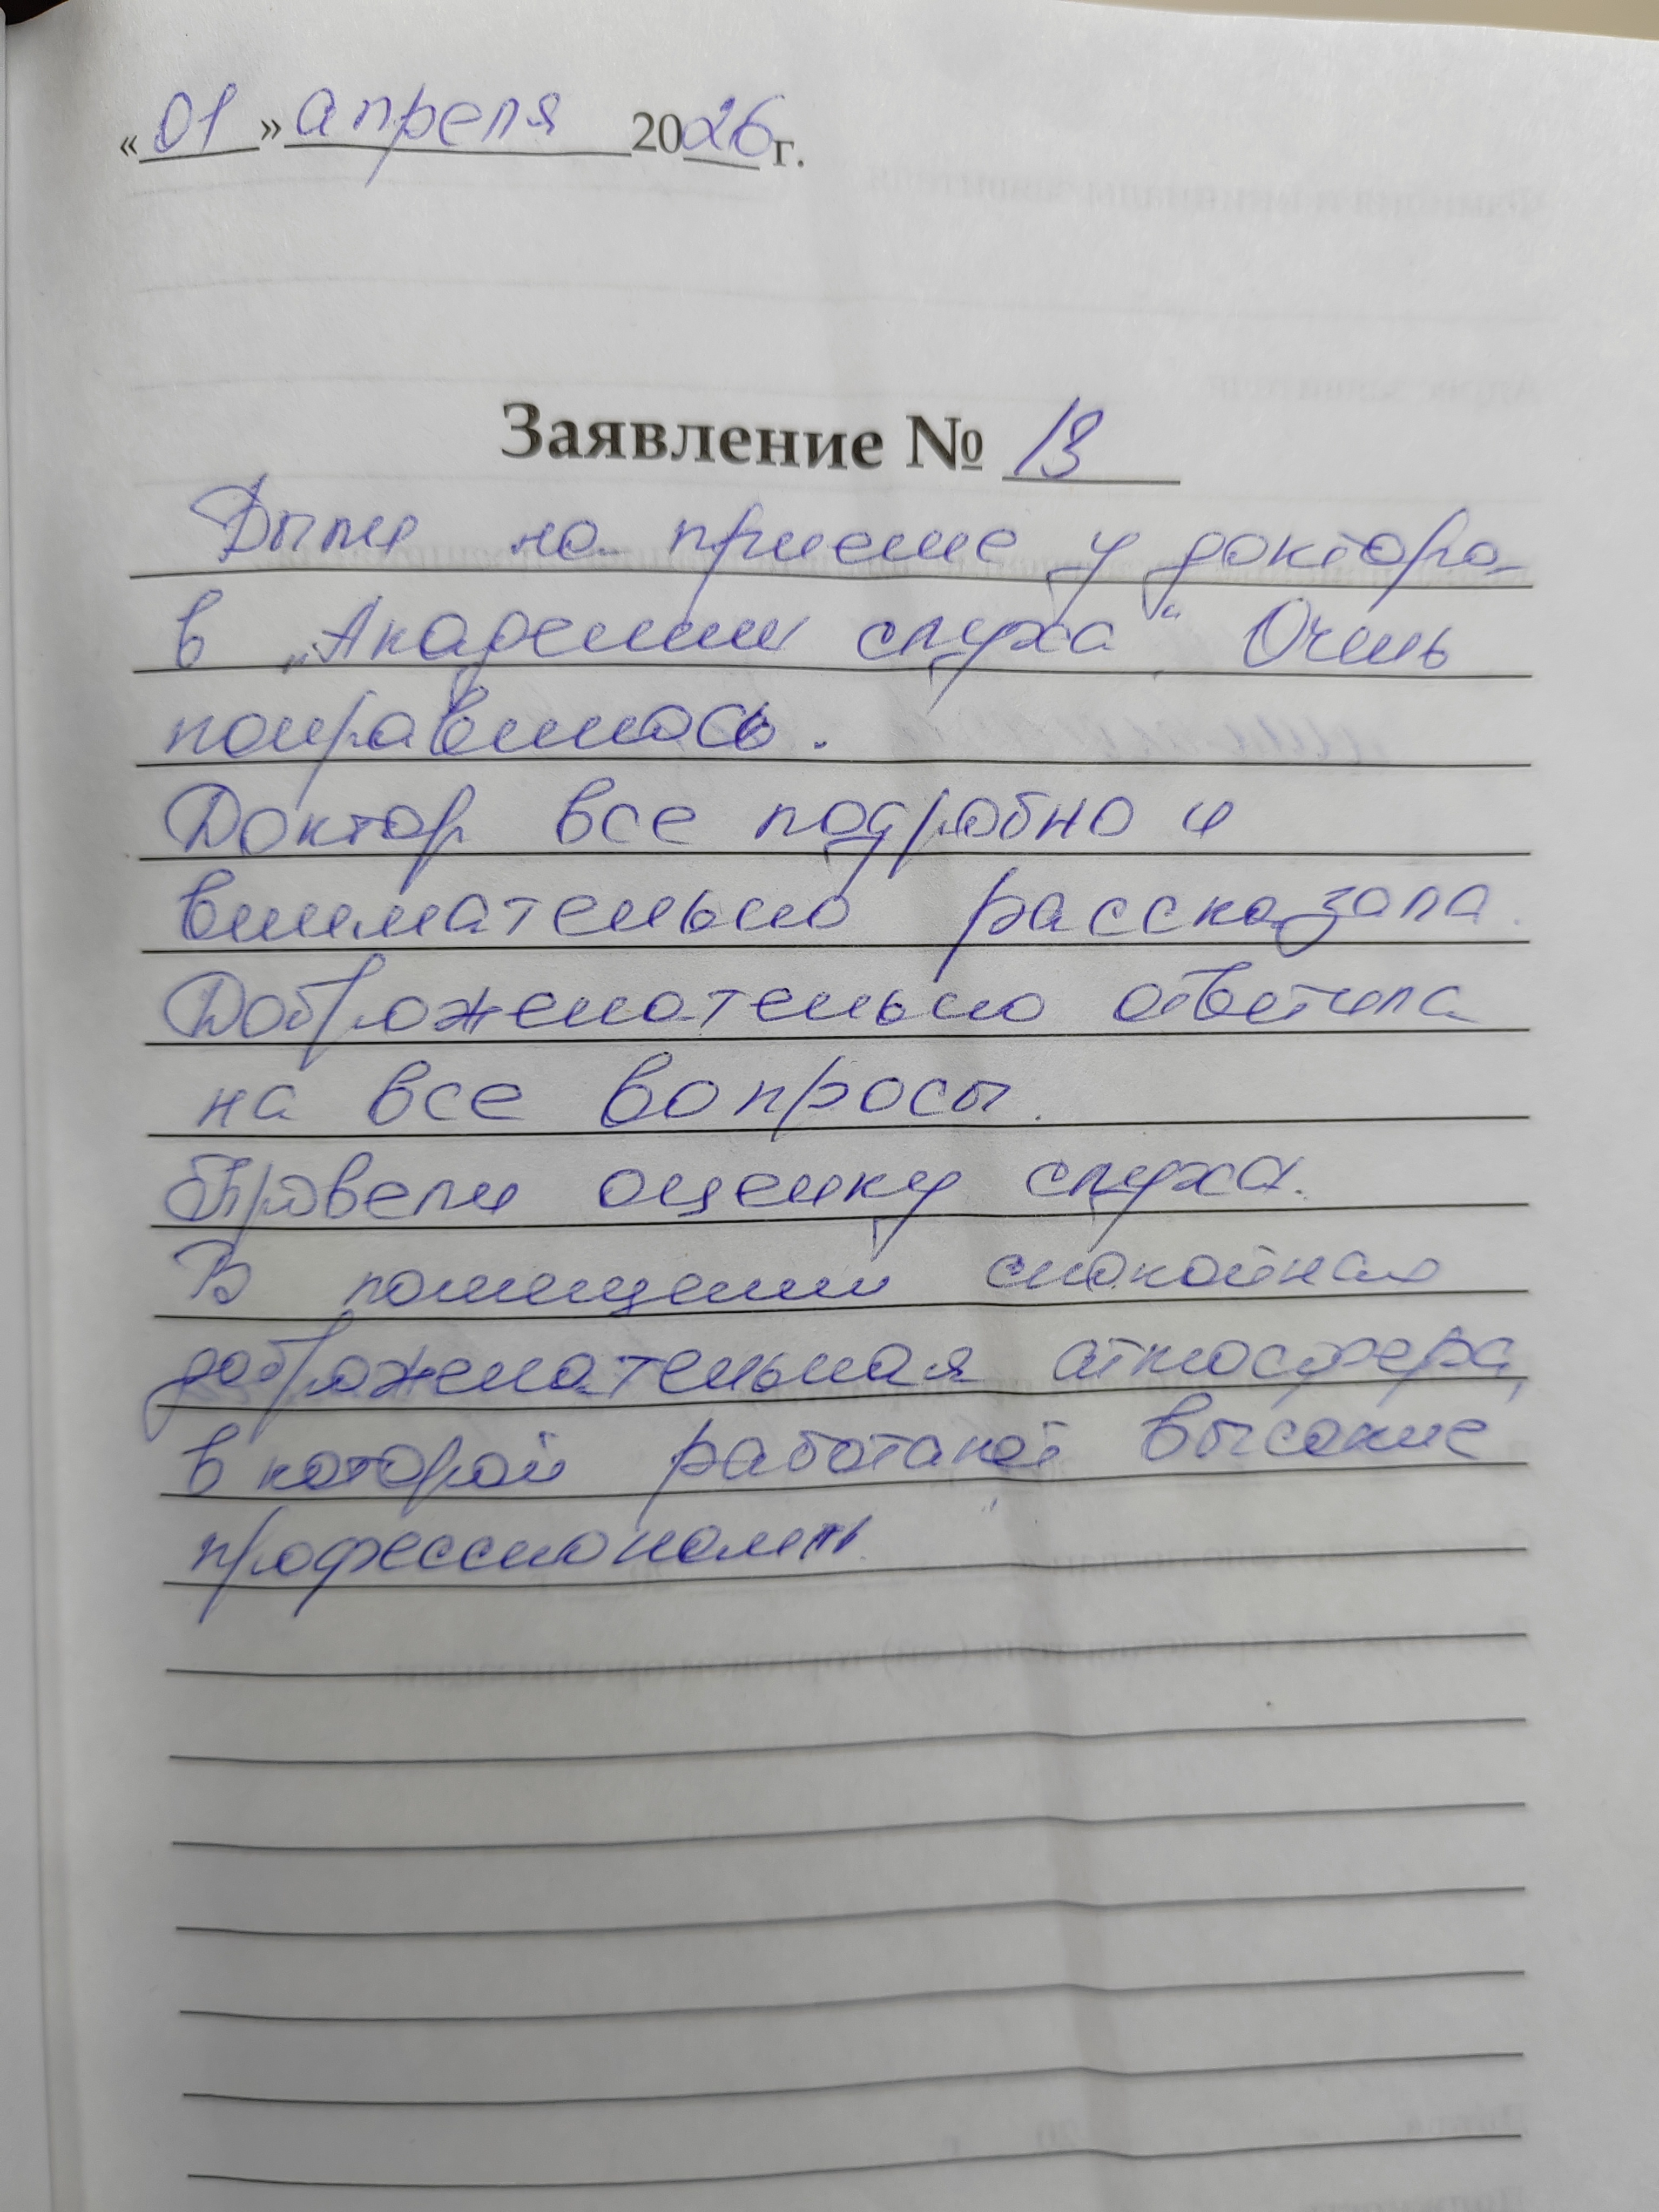 «01» апреля 2026 г.
Заявление № 13
Были на приеме у доктора
в „Академии слуха“. Очень
понравилось.
Доктор все подробно и
внимательно рассказала.
Доброжелательно ответила
на все вопросы.
Провели оценку слуха.
В помещении спокойная
доброжелательная атмосфера,
в которой работают высокие
профессионалы.